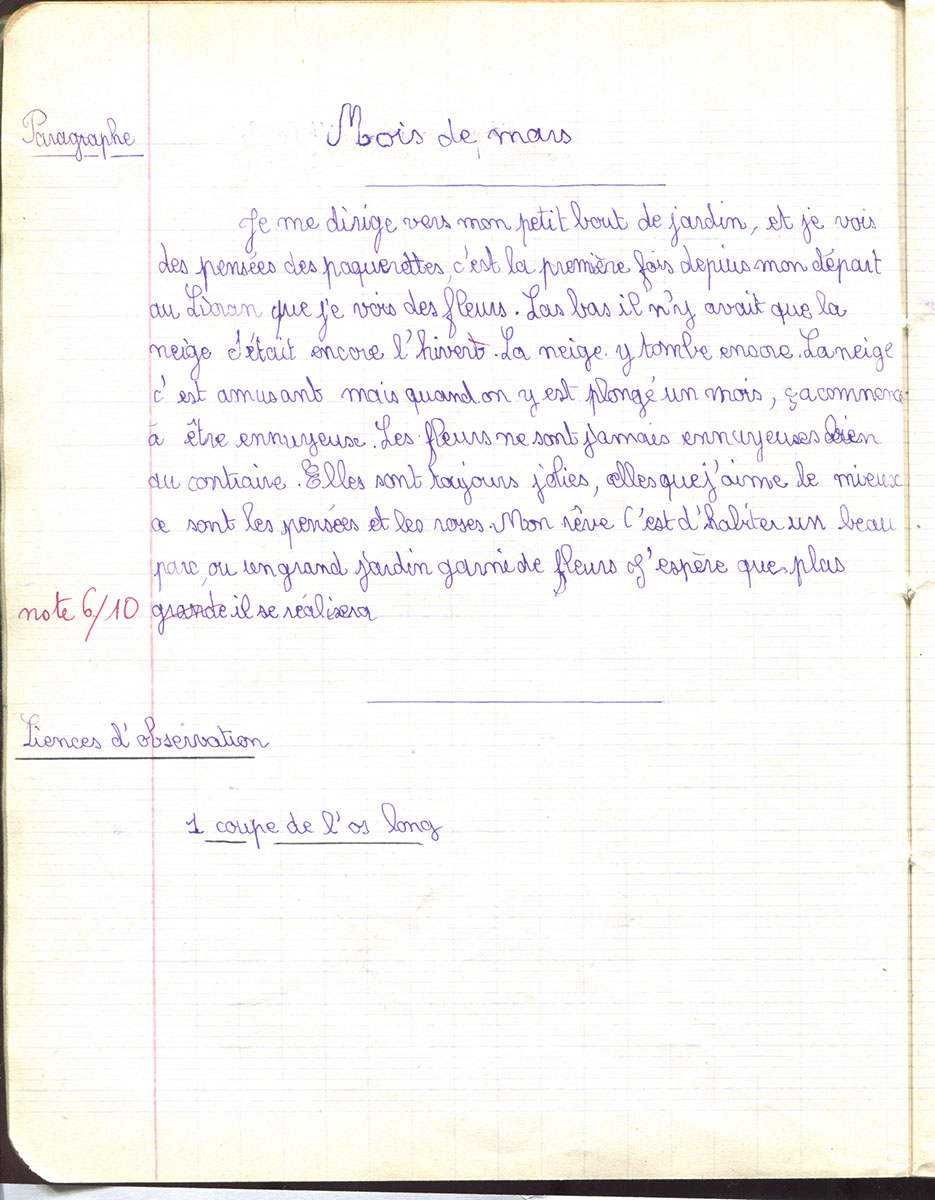 Paragraphe
Mois de mars
Je me dirige vers mon petit bout de jardin, et je vois
des pensées des paquerettes, c'est la première fois depius mon départ
au Lioran que je vois des fleurs. Las bas il n'y avait que la
neige c'était encore l'hivert. La neige y tombe encore. La neige
c'est amusant mais quand on y est plongé un mois, ça commence
à être ennuyeuse. Les fleurs ne sont jamais ennuyeuses bien
au contraire. Elles sont toujours jolies, celles que j'aime le mieux
ce sont les pensées et les roses. Mon rêve c'est d'habiter un beau
parc, ou un grand jardin garni de fleurs j'espère que plus
note 6/10 grande il se réalisera
Siences d'observation
1 coupe de l'os long